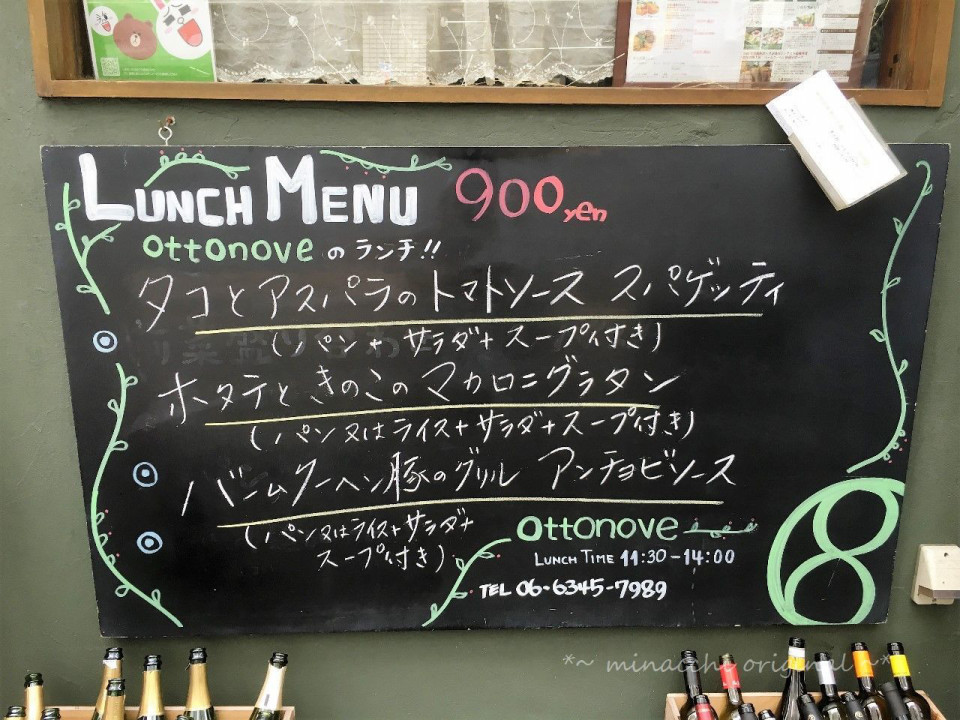 LUNCH MENU 900yen
ottonoveのランチ!!
タコとアスパラのトマトソース スパゲッティ
(パン+サラダ+スープ付き)
ホタテときのこのマカロニグラタン
(パン又はライス+サラダ+スープ付き)
バームクーヘン豚のグリル アンチョビソース
(パン又はライス+サラダ+
スープ付き)
ottonove
LUNCH TIME 11:30-14:00
TEL 06-6345-7989
8
*~ minacchi original ~*